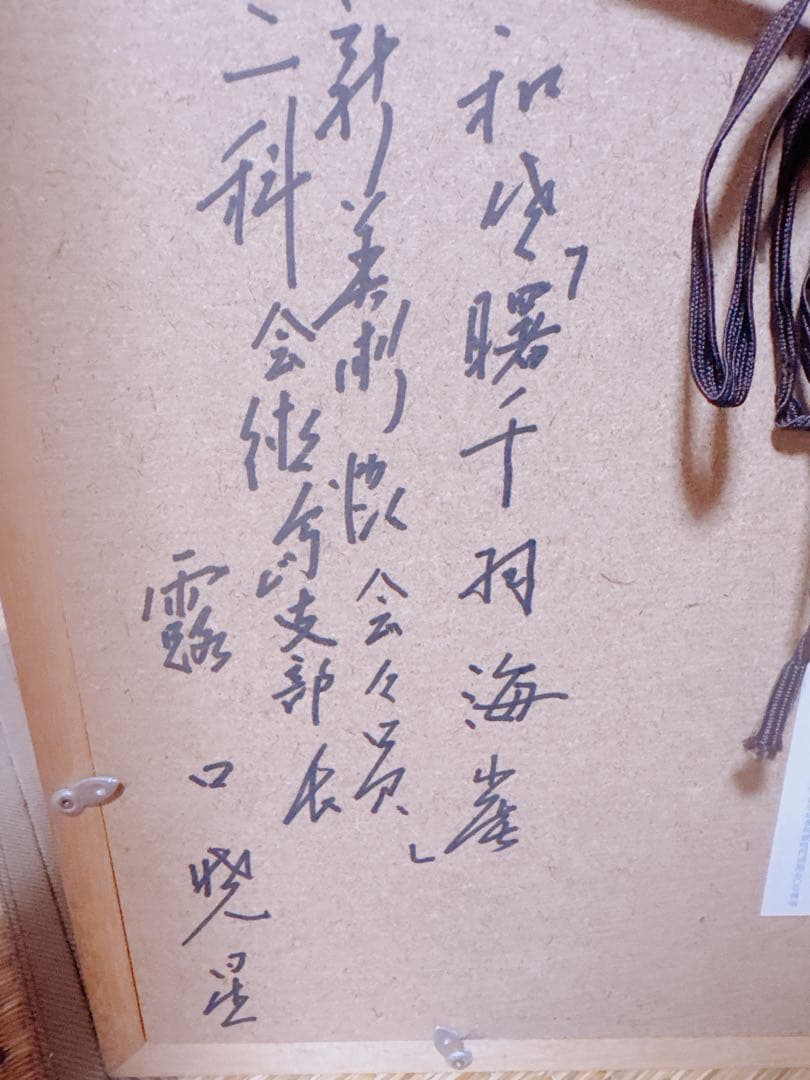 和貨「曙千羽海崖」
新美術協会々員
二科会徳島支部長
露口暁星